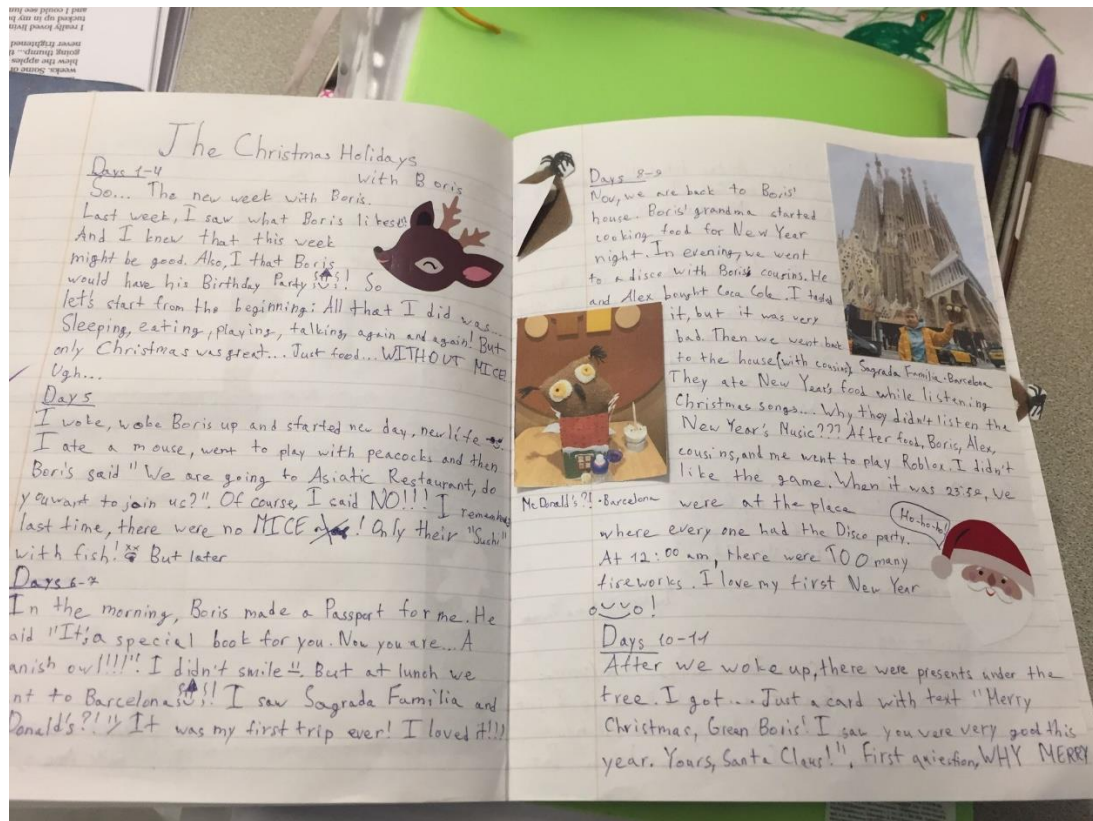 and I could see fun
tucked up in my b
I really loved livin
never frightened
going thump... t
blew the apples
weeks. Some o
The Christmas Holidays
with Boris
Days 1-4
So... The new week with Boris.
Last week, I saw what Boris likes!!!
And I knew that this week
might be good. Also, I that Boris
would have his Birthday Party ! So
let's start from the beginning: All that I did was...
Sleeping, eating, playing, talking, again and again! But
only Christmas was great... Just food... WITHOUT MICE
Ugh...
Day 5
I woke, woke Boris up and started new day, new life
I ate a mouse, went to play with peacocks and then
Boris said "We are going to Asiatic Restaurant, do
you want to join us?". Of course, I said NO!!! I remember
last time, there were no MICE ! Only their "Suchi"
with fish! But later
Days 6-7
In the morning, Boris made a Passport for me. He
aid "It's a special book for you. Now you are... A
anish owl!!!". I didn't smile. But at lunch we
nt to Barcelona ! I saw Sagrada Família and
Donald's?! It was my first trip ever! I loved it!!!
Days 8-9
Nov, we are back to Boris'
house. Boris' grandma started
cooking food for New Year
night. In evening, we went
to a disco with Boris' cousins. He
and Alex bought Coca Cola. I tasted
it, but it was very
bad. Then we went back
to the house (with cousins)
Sagrada Família - Barcelona
They ate New Year's food while listening
Christmas songs... Why they didn't listen the
New Year's Music??? After food, Boris, Alex,
cousins, and me went to play Roblox. I didn't
like the game. When it was 23:52, we
Mc Donald's?! - Barcelona
were at the place
where every one had the Disco party.
Ho-ho-ho!
At 12:00 am, there were TOO many
fireworks. I love my first New Year
!
Days 10-11
After we woke up, there were presents under the
tree. I got... Just a card with text "Merry
Christmas, Green Boris! I saw you were very good this
year. Yours, Santa Claus!". First quiestion, WHY MERRY